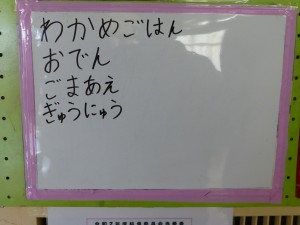 わかめごはん
おでん
ごまあえ
ぎゅうにゅう